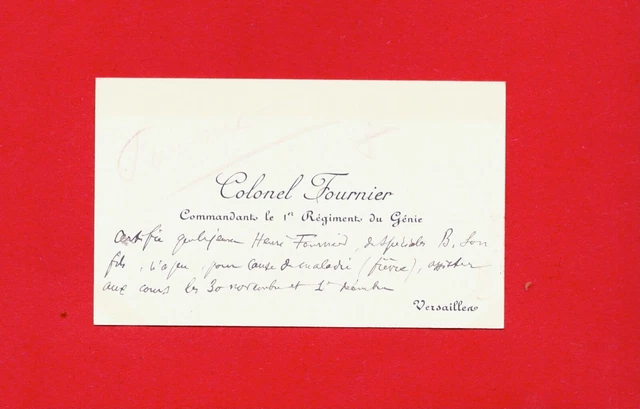 Colonel Fournier
Commandant le 1er Régiment du Génie
certifie que le jeune Henri Fournier, de Spéciales B, son
fils, n'a pu, pour cause de maladie (fièvre), assister
aux cours les 30 novembre et 1er décembre
Versailles